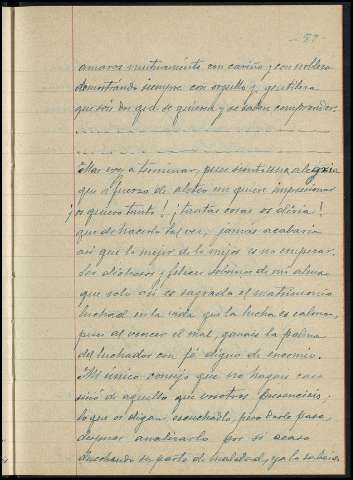 - 57 -
amaros mutuamente con cariño y con nobleza
demostrándo siempre con orgullo y gentileza
que sois dos que se quieren y se saben comprender.
Mas voy a terminar, pues siento una alegria
que a fuerza de me quiere impresionar
¡os quiero tanto! ¡tantas cosas os diria!
que de hacerlo tal vez, jamás acabaria
asi que lo mejor de lo mejor es no empezar.
Ser dichosos y felices sobrinos de mi alma
que solo asi es sagrado el matrimonio
luchad en la vida que la lucha es calma,
pues al vencer el mal, ganais la palma
del luchador con fé digno de encomio.
Mi único consejo que no hagais caso
sinó de aquello que vosotros presenciéis;
lo que os digan escuchadlo, pero darle paso
despues analizarlo por si acaso
de maldad, ya lo sabéis.